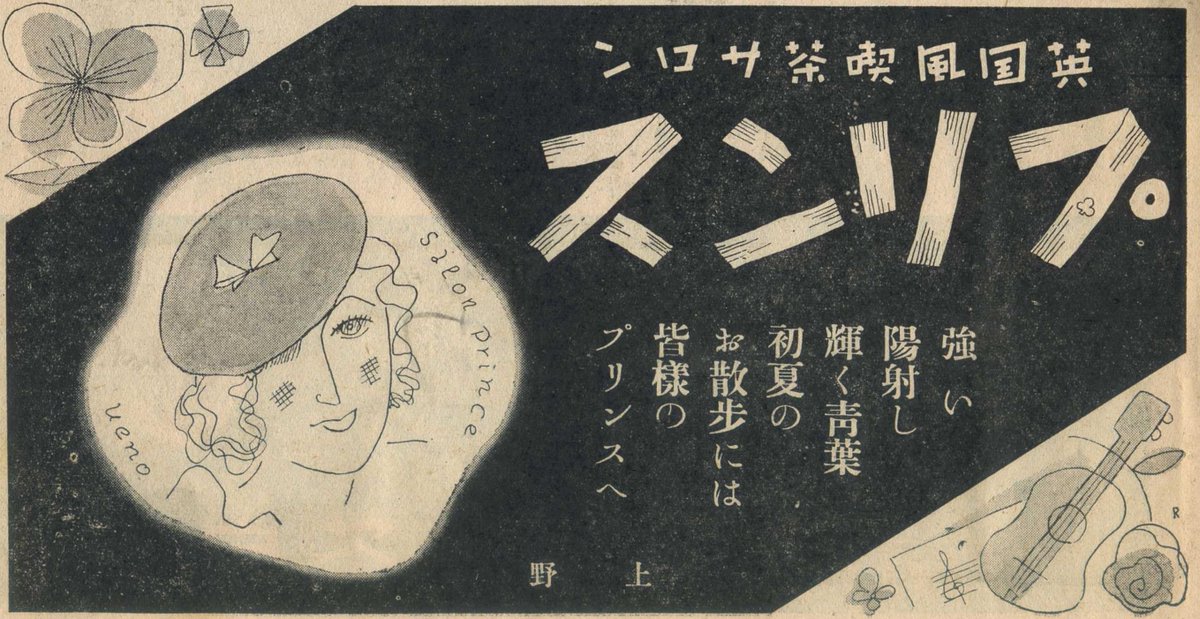 英国風喫茶サロン
プリンス
強い
陽射し
輝く靑葉
初夏の
お散步には
皆樣の
プリンスへ
上野
Salon prince
ueno
R